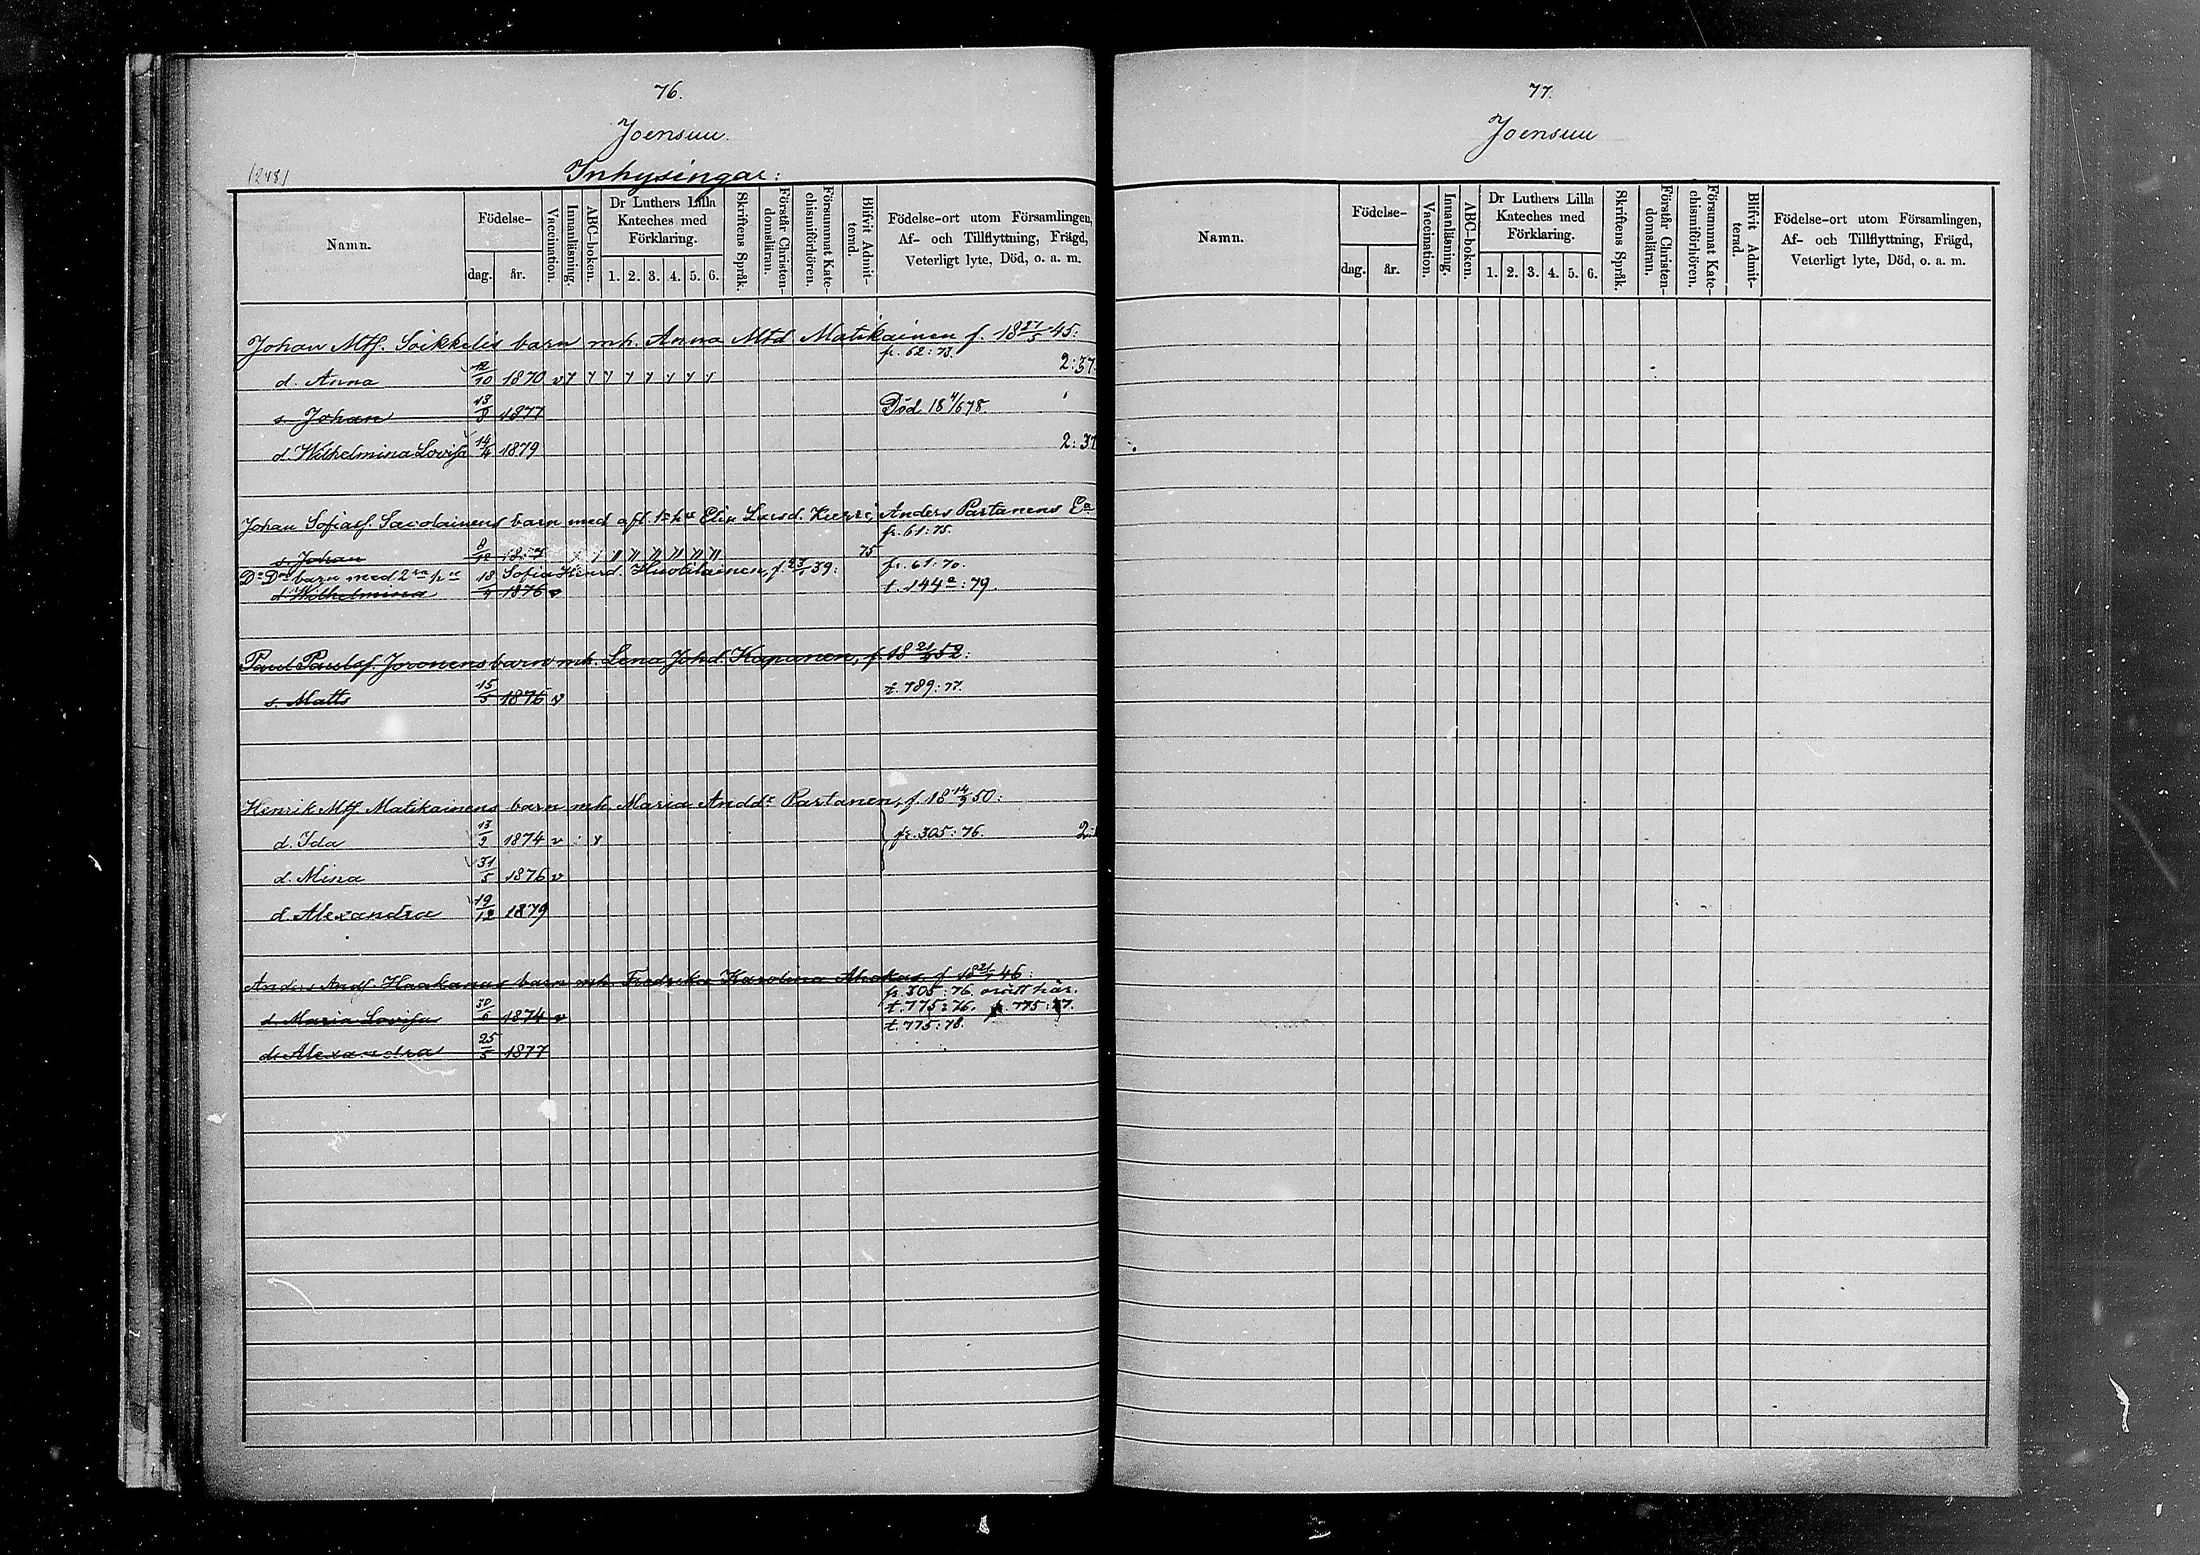 76.
Joensuu.
Inhysingar:
(248)
Namn.
Födelse-
dag.
år.
Vaccination.
Innanläsning.
ABC-boken.
Dr Luthers Lilla Kateches med Förklaring.
1. 2. 3. 4. 5. 6.
Skriftens Språk.
Förstår Christen-domsläran.
Försummat Kate-chismiförhören.
Blifvit Admit-terad.
Födelse-ort utom Församlingen,
Af- och Tillflyttning, Frägd,
Veterligt lyte, Död, o. a. m.
Johan Mtf. Soikkelis barn mh. Anna Mtd. Matikainen f. 18 27/5 45:
fr. 62:73.
d. Anna 12/10 1870 v y y y y y y y y 2:37.
s. Johan 13/9 1877 Död 18 4/6 78
d. Wilhelmina Lovisa 14/4 1879 2:37
Johan Sofiasf. Savolainens barn med afl. 1a h. Elin Larsd. Anders Partanens Ea
fr. 61:75.
s. Johan 8/12 75
Do Dos barn med 2ra h. Sofia Huotilainen, f. 39: fr. 61:70.
d. Wilhelmina 18/4 1876 v t. 144a:79.
Paul Paulsf. Joronens barn mh. Lena Johd. Kapanen, f. 18 52:
s. Matts 15/5 1876 v t. 789:77.
Henrik Mtf. Matikainens barn mh. Maria Andd. Partanen, f. 18 14/9 50:
d. Ida 13/2 1874 v : y fr. 305:76.
d. Mina 31/5 1876 v
d. Alexandra 19/12 1879
Anders Andf. Haakanas barn mh. Fredrika Karolina Ahokas, f. 18 46:
fr. 305:76 orätt här.
d. Maria Lovisa 30/6 1874 v t. 775:76. fr. 775:77.
t. 775:78.
d. Alexandra 25/5 1877
77.
Joensuu
Namn.
Födelse-
dag.
år.
Vaccination.
Innanläsning.
ABC-boken.
Dr Luthers Lilla Kateches med Förklaring.
1. 2. 3. 4. 5. 6.
Skriftens Språk.
Förstår Christen-domsläran.
Försummat Kate-chismiförhören.
Blifvit Admit-terad.
Födelse-ort utom Församlingen,
Af- och Tillflyttning, Frägd,
Veterligt lyte, Död, o. a. m.